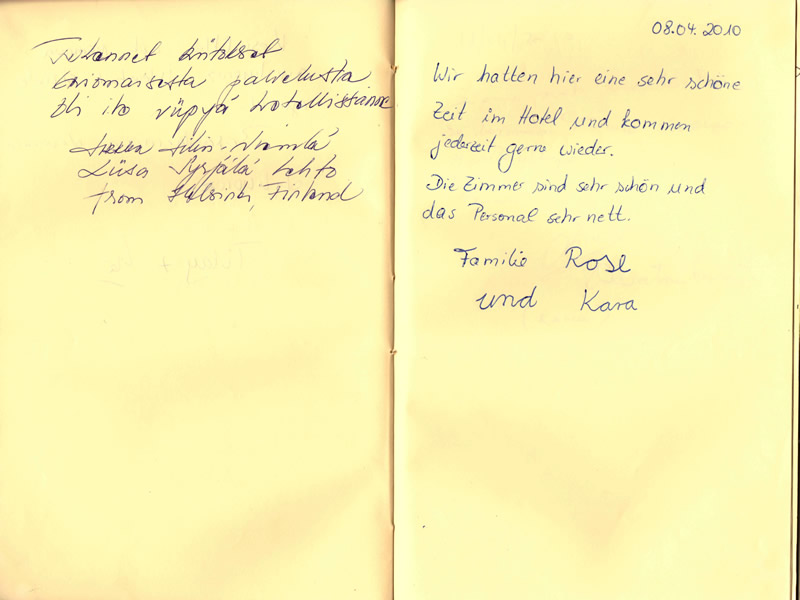 kiitokset
erinomaisesta palvelusta
Oli ilo viipyä hotellissanne
Liisa Syrjälä Lehto
from Helsinki, Finland
08.04.2010
Wir hatten hier eine sehr schöne
Zeit im Hotel und kommen
jederzeit gerne wieder.
Die Zimmer sind sehr schön und
das Personal sehr nett.
Familie Rose
und Kara